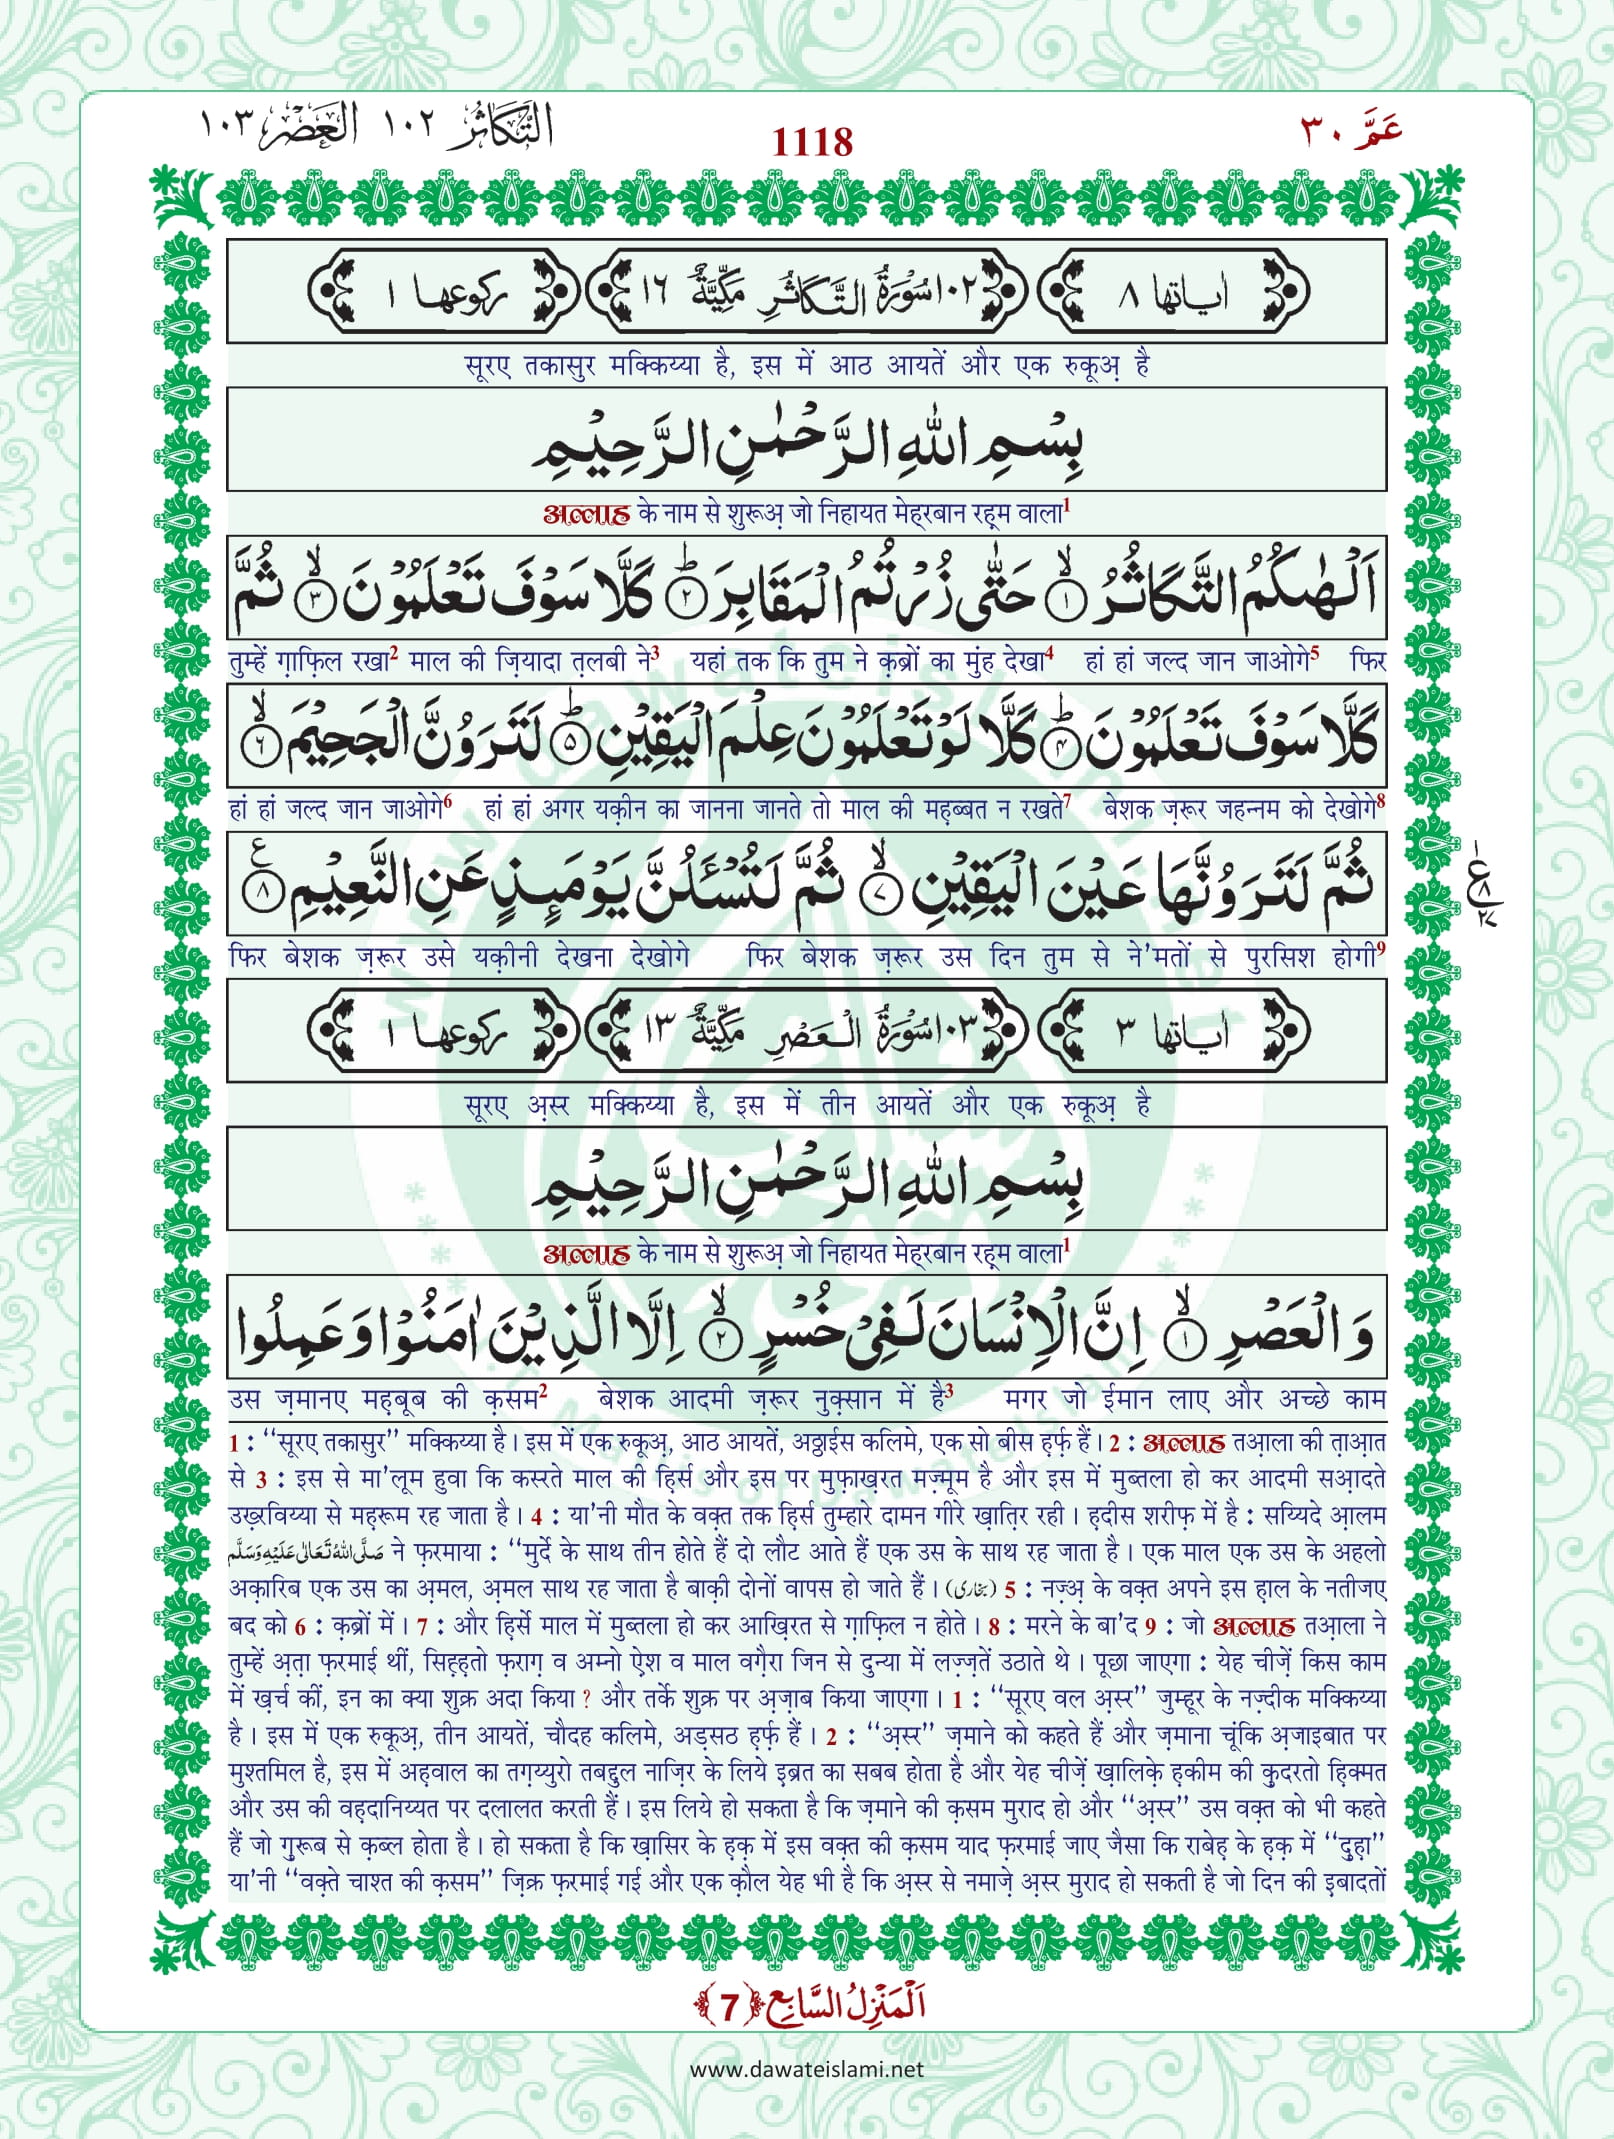 التَّكَاثُر ١٠٢ العَصْر ١٠٣
1118
عَمَّ ٣٠
اٰیاتها ٨ ١٠٢ سُوْرَةُ التَّكَاثُرِ مَكِّيَّةٌ ١٦ ركوعها ١
सूरए तकासुर मक्किय्या है, इस में आठ आयतें और एक रुकूअ़ है
بِسْمِ اللهِ الرَّحْمٰنِ الرَّحِيْمِ
अल्लाह के नाम से शुरूअ़ जो निहायत मेहरबान रह़म वाला1
اَلْهٰىكُمُ التَّكَاثُرُ ۙ﴿١﴾ حَتّٰى زُرْتُمُ الْمَقَابِرَ ؕ﴿٢﴾ كَلَّا سَوْفَ تَعْلَمُوْنَ ۙ﴿٣﴾ ثُمَّ
तुम्हें ग़ाफ़िल रखा2 माल की ज़ियादा त़लबी ने3 यहां तक कि तुम ने क़ब्रों का मुंह देखा4 हां हां जल्द जान जाओगे5 फिर
كَلَّا سَوْفَ تَعْلَمُوْنَ ؕ﴿٤﴾ كَلَّا لَوْ تَعْلَمُوْنَ عِلْمَ الْيَقِيْنِ ؕ﴿٥﴾ لَتَرَوُنَّ الْجَحِيْمَ ۙ﴿٦﴾
हां हां जल्द जान जाओगे6 हां हां अगर यक़ीन का जानना जानते तो माल की मह़ब्बत न रखते7 बेशक ज़रूर जहन्नम को देखोगे8
ثُمَّ لَتَرَوُنَّهَا عَيْنَ الْيَقِيْنِ ۙ﴿٧﴾ ثُمَّ لَتُسْـَٔلُنَّ يَوْمَىِٕذٍ عَنِ النَّعِيْمِ ﴿٨﴾ ع
फिर बेशक ज़रूर उसे यक़ीनी देखना देखोगे फिर बेशक ज़रूर उस दिन तुम से ने'मतों से पुरसिश होगी9
اٰیاتها ٣ ١٠٣ سُوْرَةُ الْعَصْرِ مَكِّيَّةٌ ١٣ ركوعها ١
सूरए अ़स्र मक्किय्या है, इस में तीन आयतें और एक रुकूअ़ है
بِسْمِ اللهِ الرَّحْمٰنِ الرَّحِيْمِ
अल्लाह के नाम से शुरूअ़ जो निहायत मेहरबान रह़म वाला1
وَ الْعَصْرِ ۙ﴿١﴾ اِنَّ الْاِنْسَانَ لَفِيْ خُسْرٍ ۙ﴿٢﴾ اِلَّا الَّذِيْنَ اٰمَنُوْا وَ عَمِلُوا
उस ज़मानए मह़बूब की क़सम2 बेशक आदमी ज़रूर नुक़्सान में है3 मगर जो ईमान लाए और अच्छे काम
1 : “सूरए तकासुर” मक्किय्या है। इस में एक रुकूअ़, आठ आयतें, अठ्ठाईस कलिमे, एक सो बीस ह़र्फ़ हैं। 2 : अल्लाह तआ़ला की त़ाअ़त
से 3 : इस से मा'लूम हुवा कि कस्रते माल की ह़िर्स और इस पर मुफ़ाख़रत मज़्मूम है और इस में मुब्तला हो कर आदमी सआ़दते
उख़्रविय्या से मह़रूम रह जाता है। 4 : या'नी मौत के वक़्त तक ह़िर्स तुम्हारे दामन गीरे ख़ात़िर रही। ह़दीस शरीफ़ में है : सय्यिदे आ़लम
صَلَّى اللهُ تَعَالٰى عَلَيْهِ وَسَلَّم ने फ़रमाया : “मुर्दे के साथ तीन होते हैं दो लौट आते हैं एक उस के साथ रह जाता है। एक माल एक उस के अहलो
अक़ारिब एक उस का अ़मल, अ़मल साथ रह जाता है बाक़ी दोनों वापस हो जाते हैं। (بخاری) 5 : नज़्अ़ के वक़्त अपने इस ह़ाल के नतीजए
बद को 6 : क़ब्रों में। 7 : और ह़िर्से माल में मुब्तला हो कर आख़िरत से ग़ाफ़िल न होते। 8 : मरने के बा'द 9 : जो अल्लाह तआ़ला ने
तुम्हें अ़त़ा फ़रमाई थीं, सिह़्ह़तो फ़राग़ व अम्नो ऐश व माल वग़ैरा जिन से दुन्या में लज़्ज़तें उठाते थे। पूछा जाएगा : येह चीज़ें किस काम
में ख़र्च कीं, इन का क्या शुक्र अदा किया ? और तर्के शुक्र पर अ़ज़ाब किया जाएगा। 1 : “सूरए वल अ़स्र” जुम्हूर के नज़्दीक मक्किय्या
है। इस में एक रुकूअ़, तीन आयतें, चौदह कलिमे, अड़सठ ह़र्फ़ हैं। 2 : “अ़स्र” ज़माने को कहते हैं और ज़माना चूंकि अ़जाइबात पर
मुश्तमिल है, इस में अह़वाल का तग़य्युरो तबद्दुल नाज़िर के लिये इ़ब्रत का सबब होता है और येह चीज़ें ख़ालिक़े ह़कीम की क़ुदरतो ह़िक्मत
और उस की वह़दानिय्यत पर दलालत करती हैं। इस लिये हो सकता है कि ज़माने की क़सम मुराद हो और “अ़स्र” उस वक़्त को भी कहते
हैं जो ग़ुरूब से क़ब्ल होता है। हो सकता है कि ख़ासिर के ह़क़ में इस वक़्त की क़सम याद फ़रमाई जाए जैसा कि राबेह़ के ह़क़ में “दुह़ा”
या'नी “वक़्ते चाश्त की क़सम” ज़िक्र फ़रमाई गई और एक क़ौल येह भी है कि अ़स्र से नमाज़े अ़स्र मुराद हो सकती है जो दिन की इ़बादतों
اَلْمَنْزِلُ السَّابِع ﴿7﴾
www.dawateislami.net